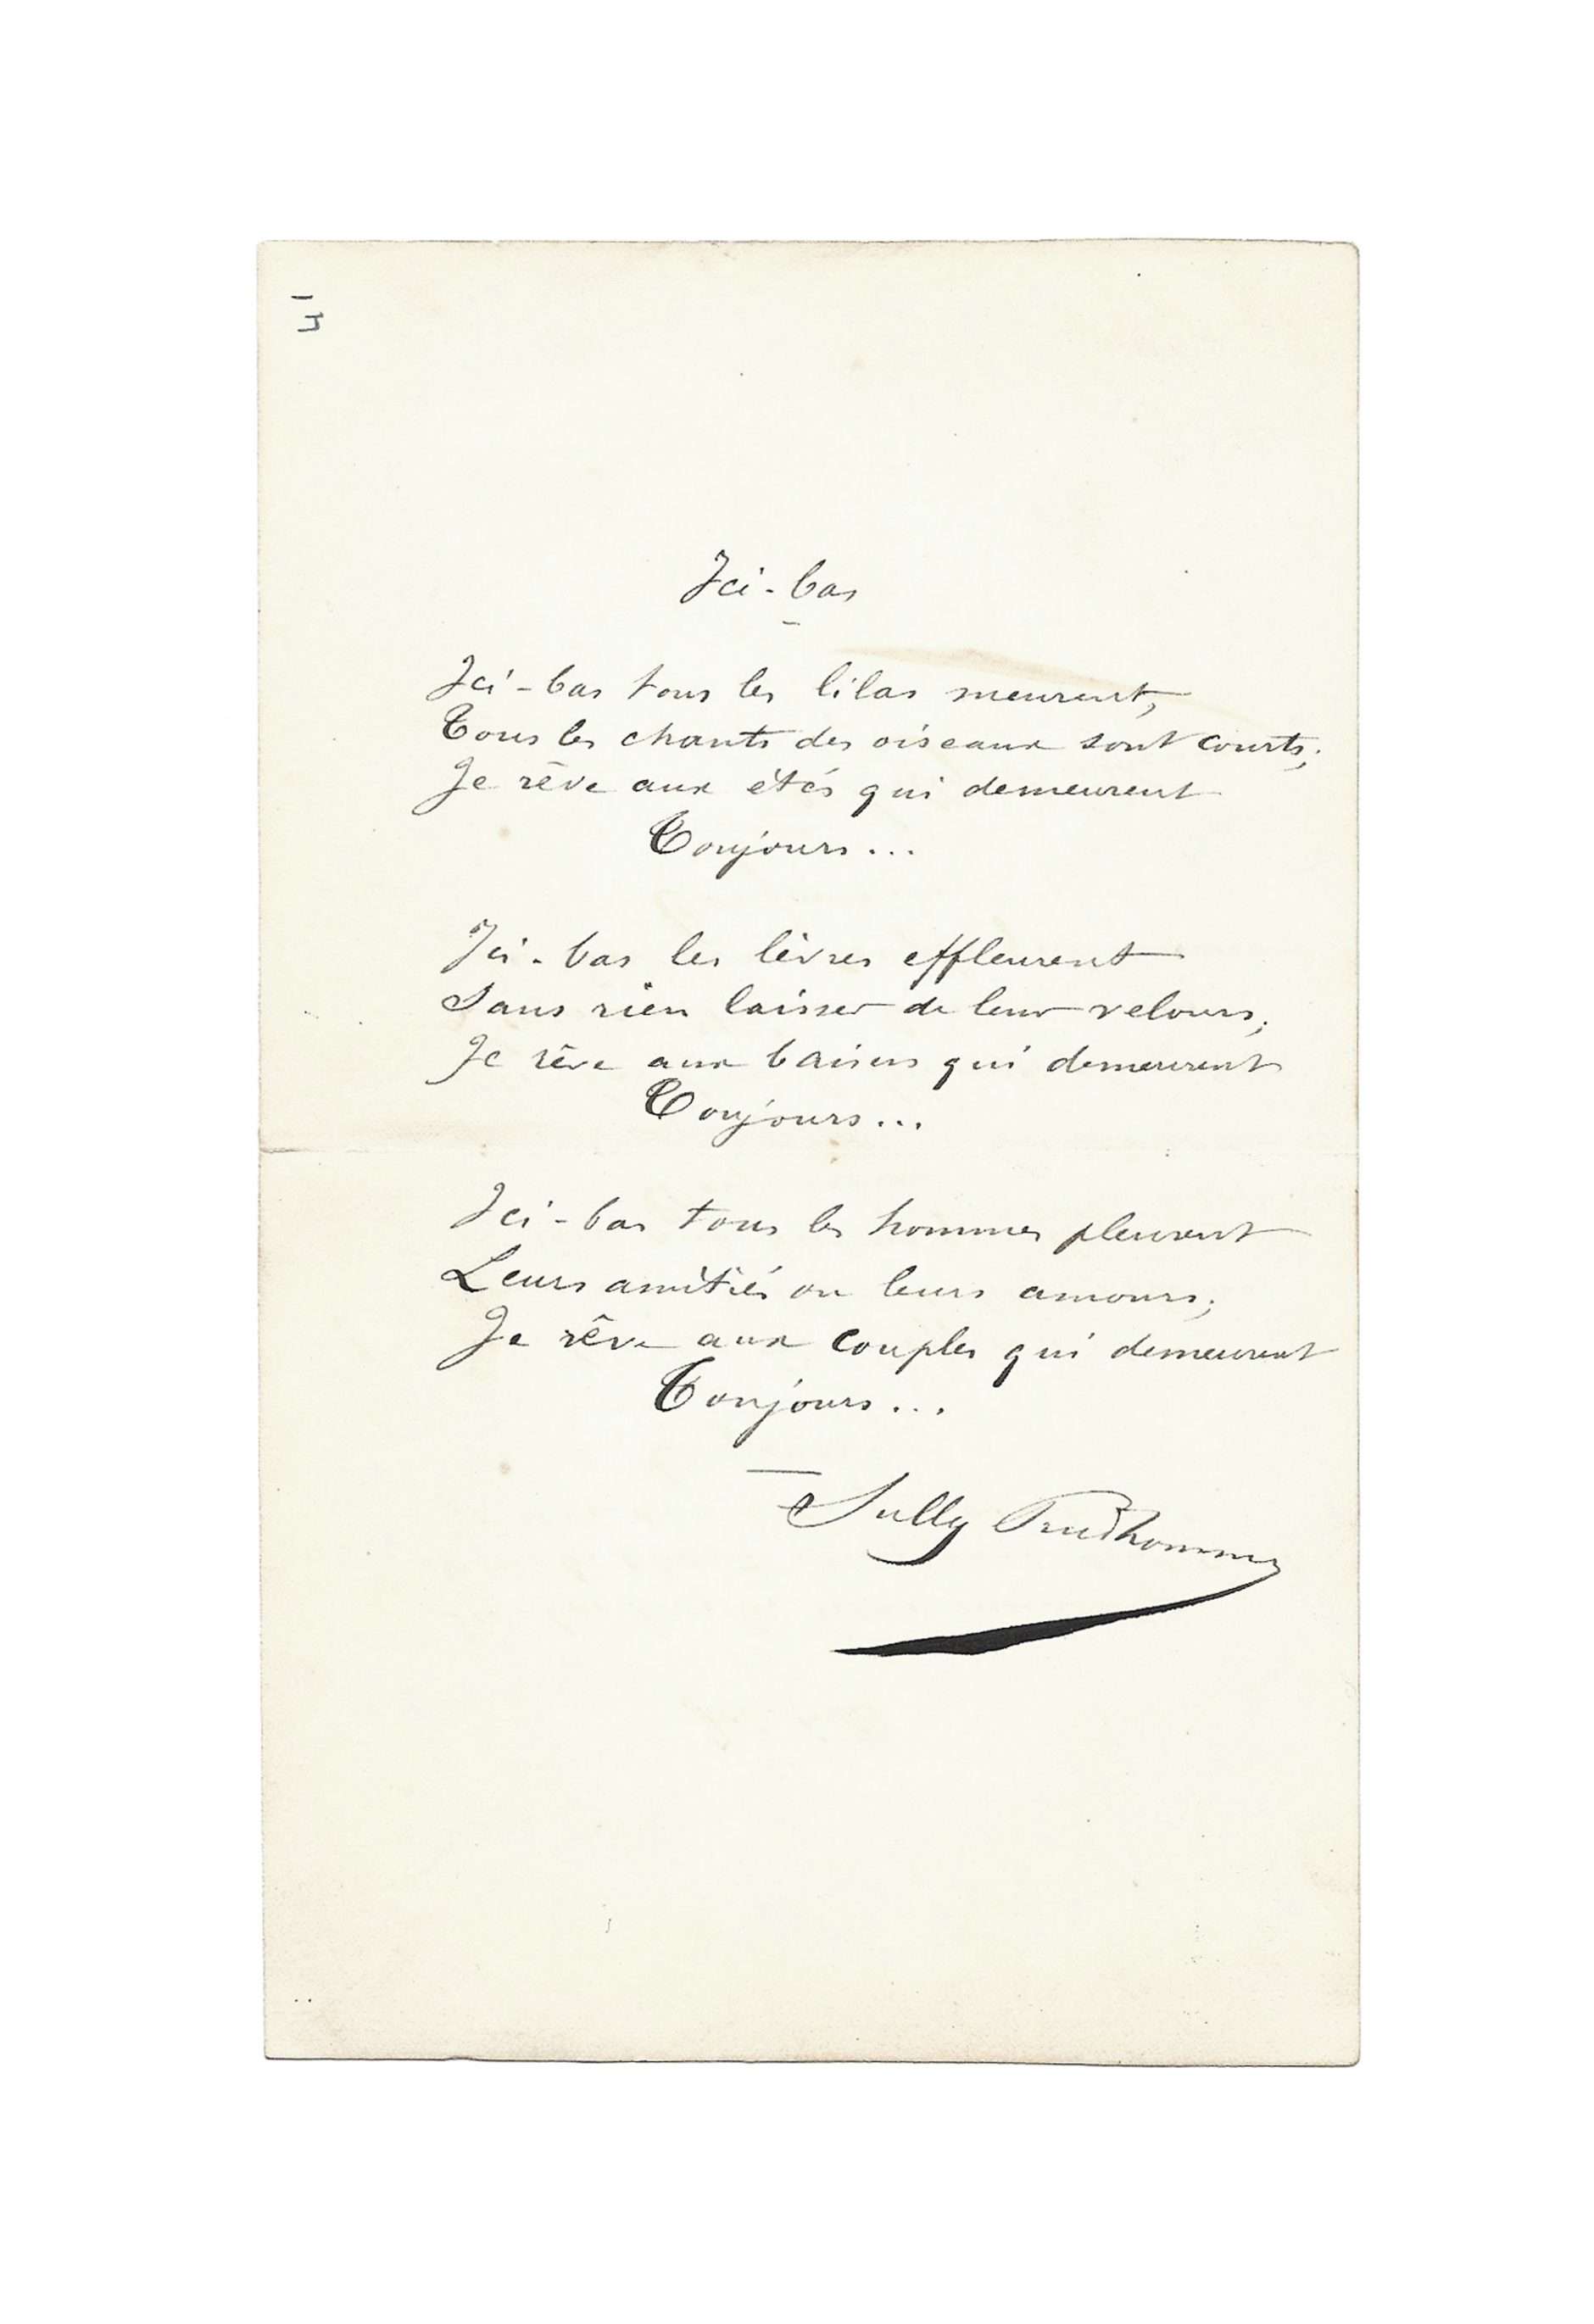 13
Ici-bas
Ici-bas tous les lilas meurent,
Tous les chants des oiseaux sont courts;
Je rêve aux étés qui demeurent
Toujours...
Ici-bas les lèvres effleurent
Sans rien laisser de leur velours;
Je rêve aux baisers qui demeurent
Toujours...
Ici-bas tous les hommes pleurent
Leurs amitiés ou leurs amours;
Je rêve aux couples qui demeurent
Toujours...
Sully Prudhomme